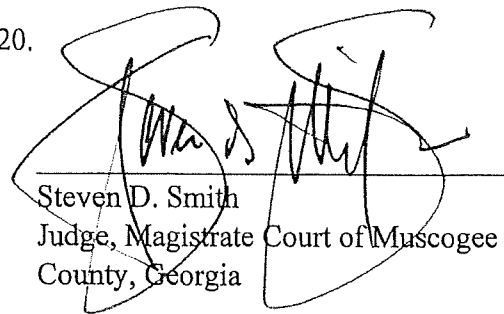 20.
Steven D. Smith
Judge, Magistrate Court of Muscogee
County, Georgia